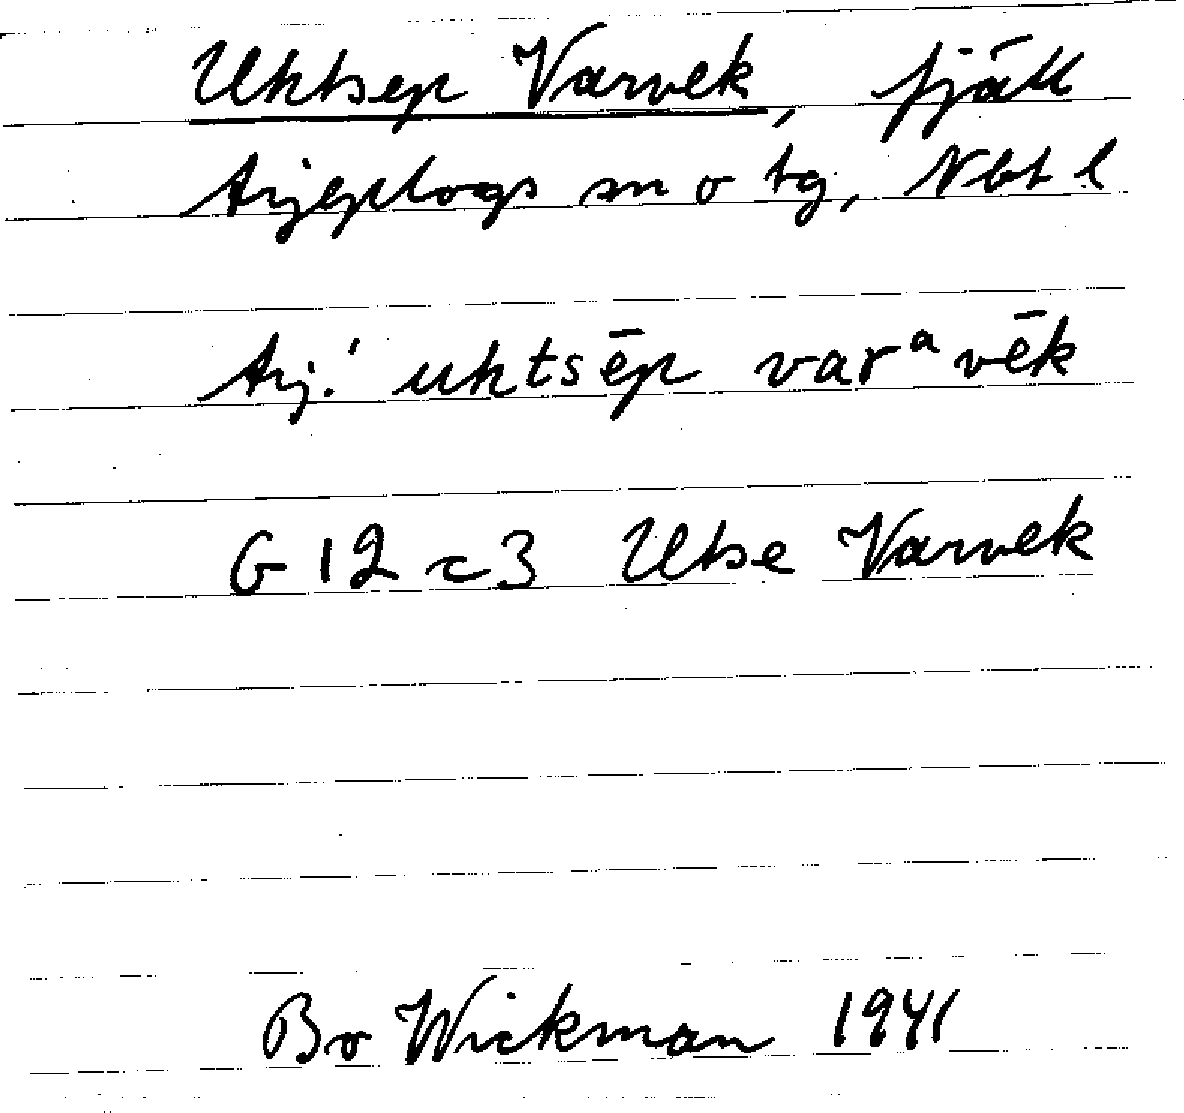 Uhtsep Varvek, fjäll
Arjeplogs sn o tg, Nbt l
Arj.' uhtsēp varᵃvēk
G 12 c 3 Utse Varvek
Bo Wickman 1941